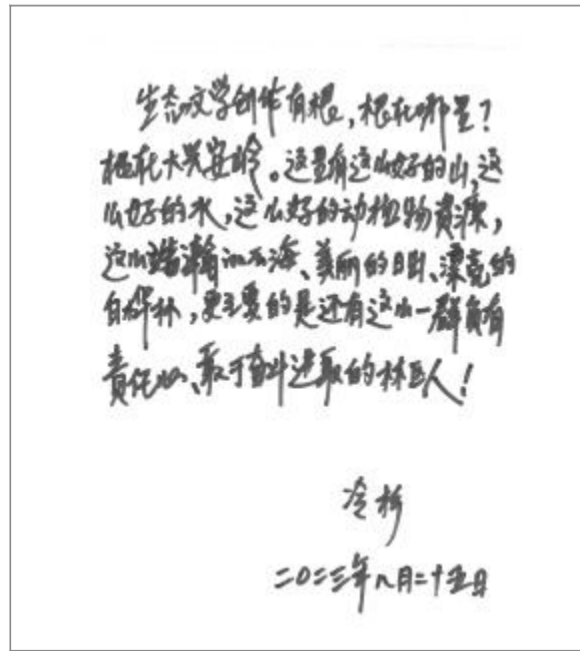 生态文学创作有根,根在哪里?
根在大兴安岭。这里有这么好的山,这
么好的水,这么好的动植物资源,
这么浩瀚的云海、美丽的日出、漂亮的
白桦林,更主要的是还有这么一群负有
责任心、敢于奋斗进取的林区人!
冷杉
二〇二三年八月二十五日